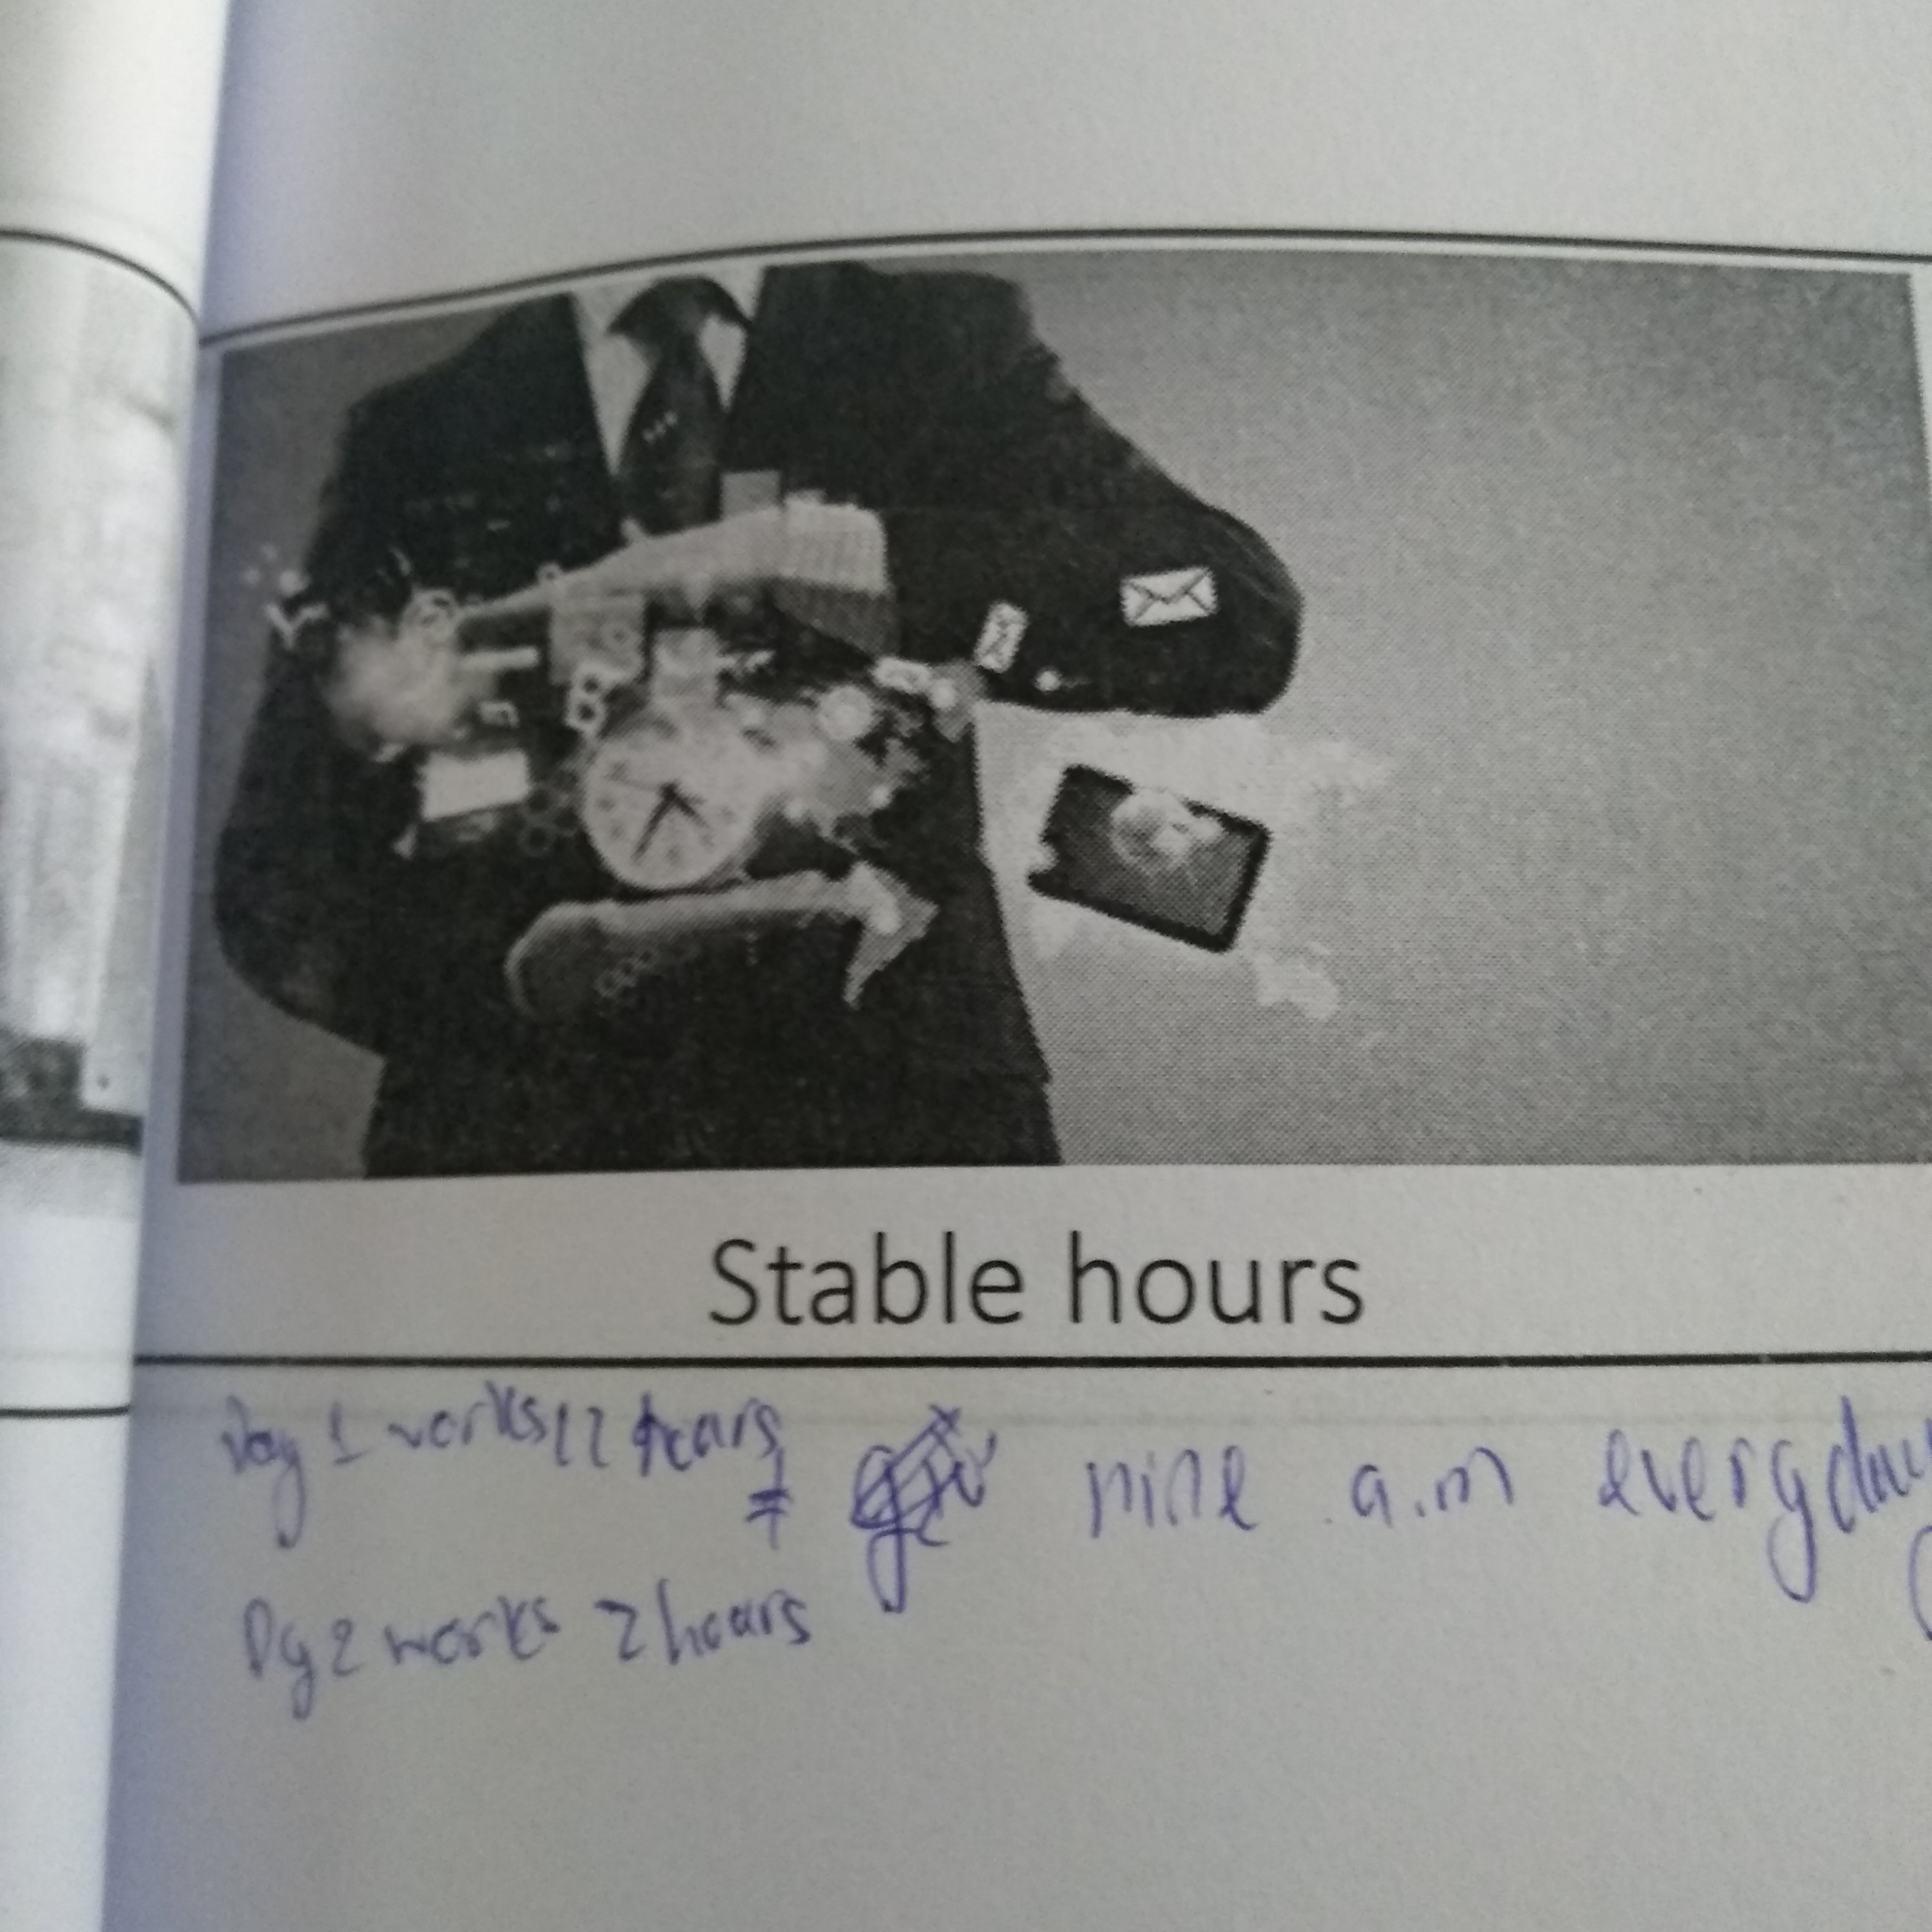 Stable hours
Day 1 works 12 hours
≠ nine a.m everyday
Dy 2 works 2 hours